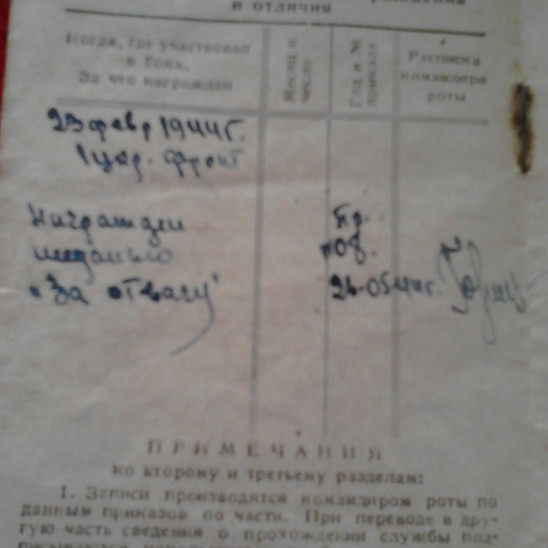 и отличия
Когда, где участвовал
в боях.
За что награжден
Месяц и
число
Год и №
приказа
Расписка
командира
роты
23 февр 1944г.
1 укр. фронт
Награжден
медалью
"За отвагу"
Пр
26.05.44г.
ПРИМЕЧАНИЯ
ко второму и третьему разделам:
1. Записи производятся командиром роты по
данным приказов по части. При переводе в дру-
гую часть сведения о прохождении службы под-